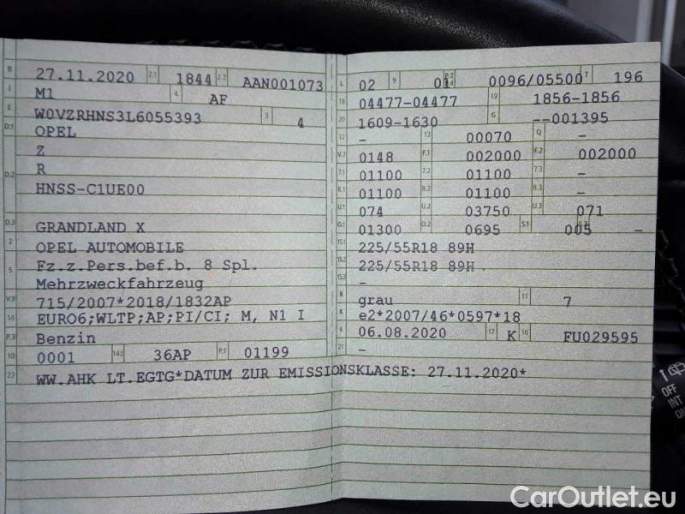 B 27.11.2020 2.1 1844 2.2 AAN001073
J M1 4 AF
E W0VZRHNS3L6055393 3 4
D.1 OPEL
Z
D.2 R
HNSS-C1UE00
D.3 GRANDLAND X
2 OPEL AUTOMOBILE
5 Fz.z.Pers.bef.b. 8 Spl.
Mehrzweckfahrzeug
V.9 715/2007*2018/1832AP
14 EURO6;WLTP;AP;PI/CI; M, N1 I
P.3 Benzin
10 0001 14.1 36AP P.1 01199
22 WW.AHK LT.EGTG*DATUM ZUR EMISSIONSKLASSE: 27.11.2020*
L 02 9 01 P.2 P.4 0096/05500 T 196
18 04477-04477 19 1856-1856
20 1609-1630 G --001395
12 - 13 00070 Q -
V.7 0148 F.1 002000 F.2 002000
7.1 01100 7.2 01100 7.3 -
8.1 01100 8.2 01100 8.3 -
U.1 074 U.2 03750 U.3 071
O.1 01300 O.2 0695 S.1 005 S.2 -
15.1 225/55R18 89H
15.2 225/55R18 89H
15.3 -
R grau 11 7
K e2*2007/46*0597*18
6 06.08.2020 17 K 16 FU029595
21 -
OFF
INT
CarOutlet.eu